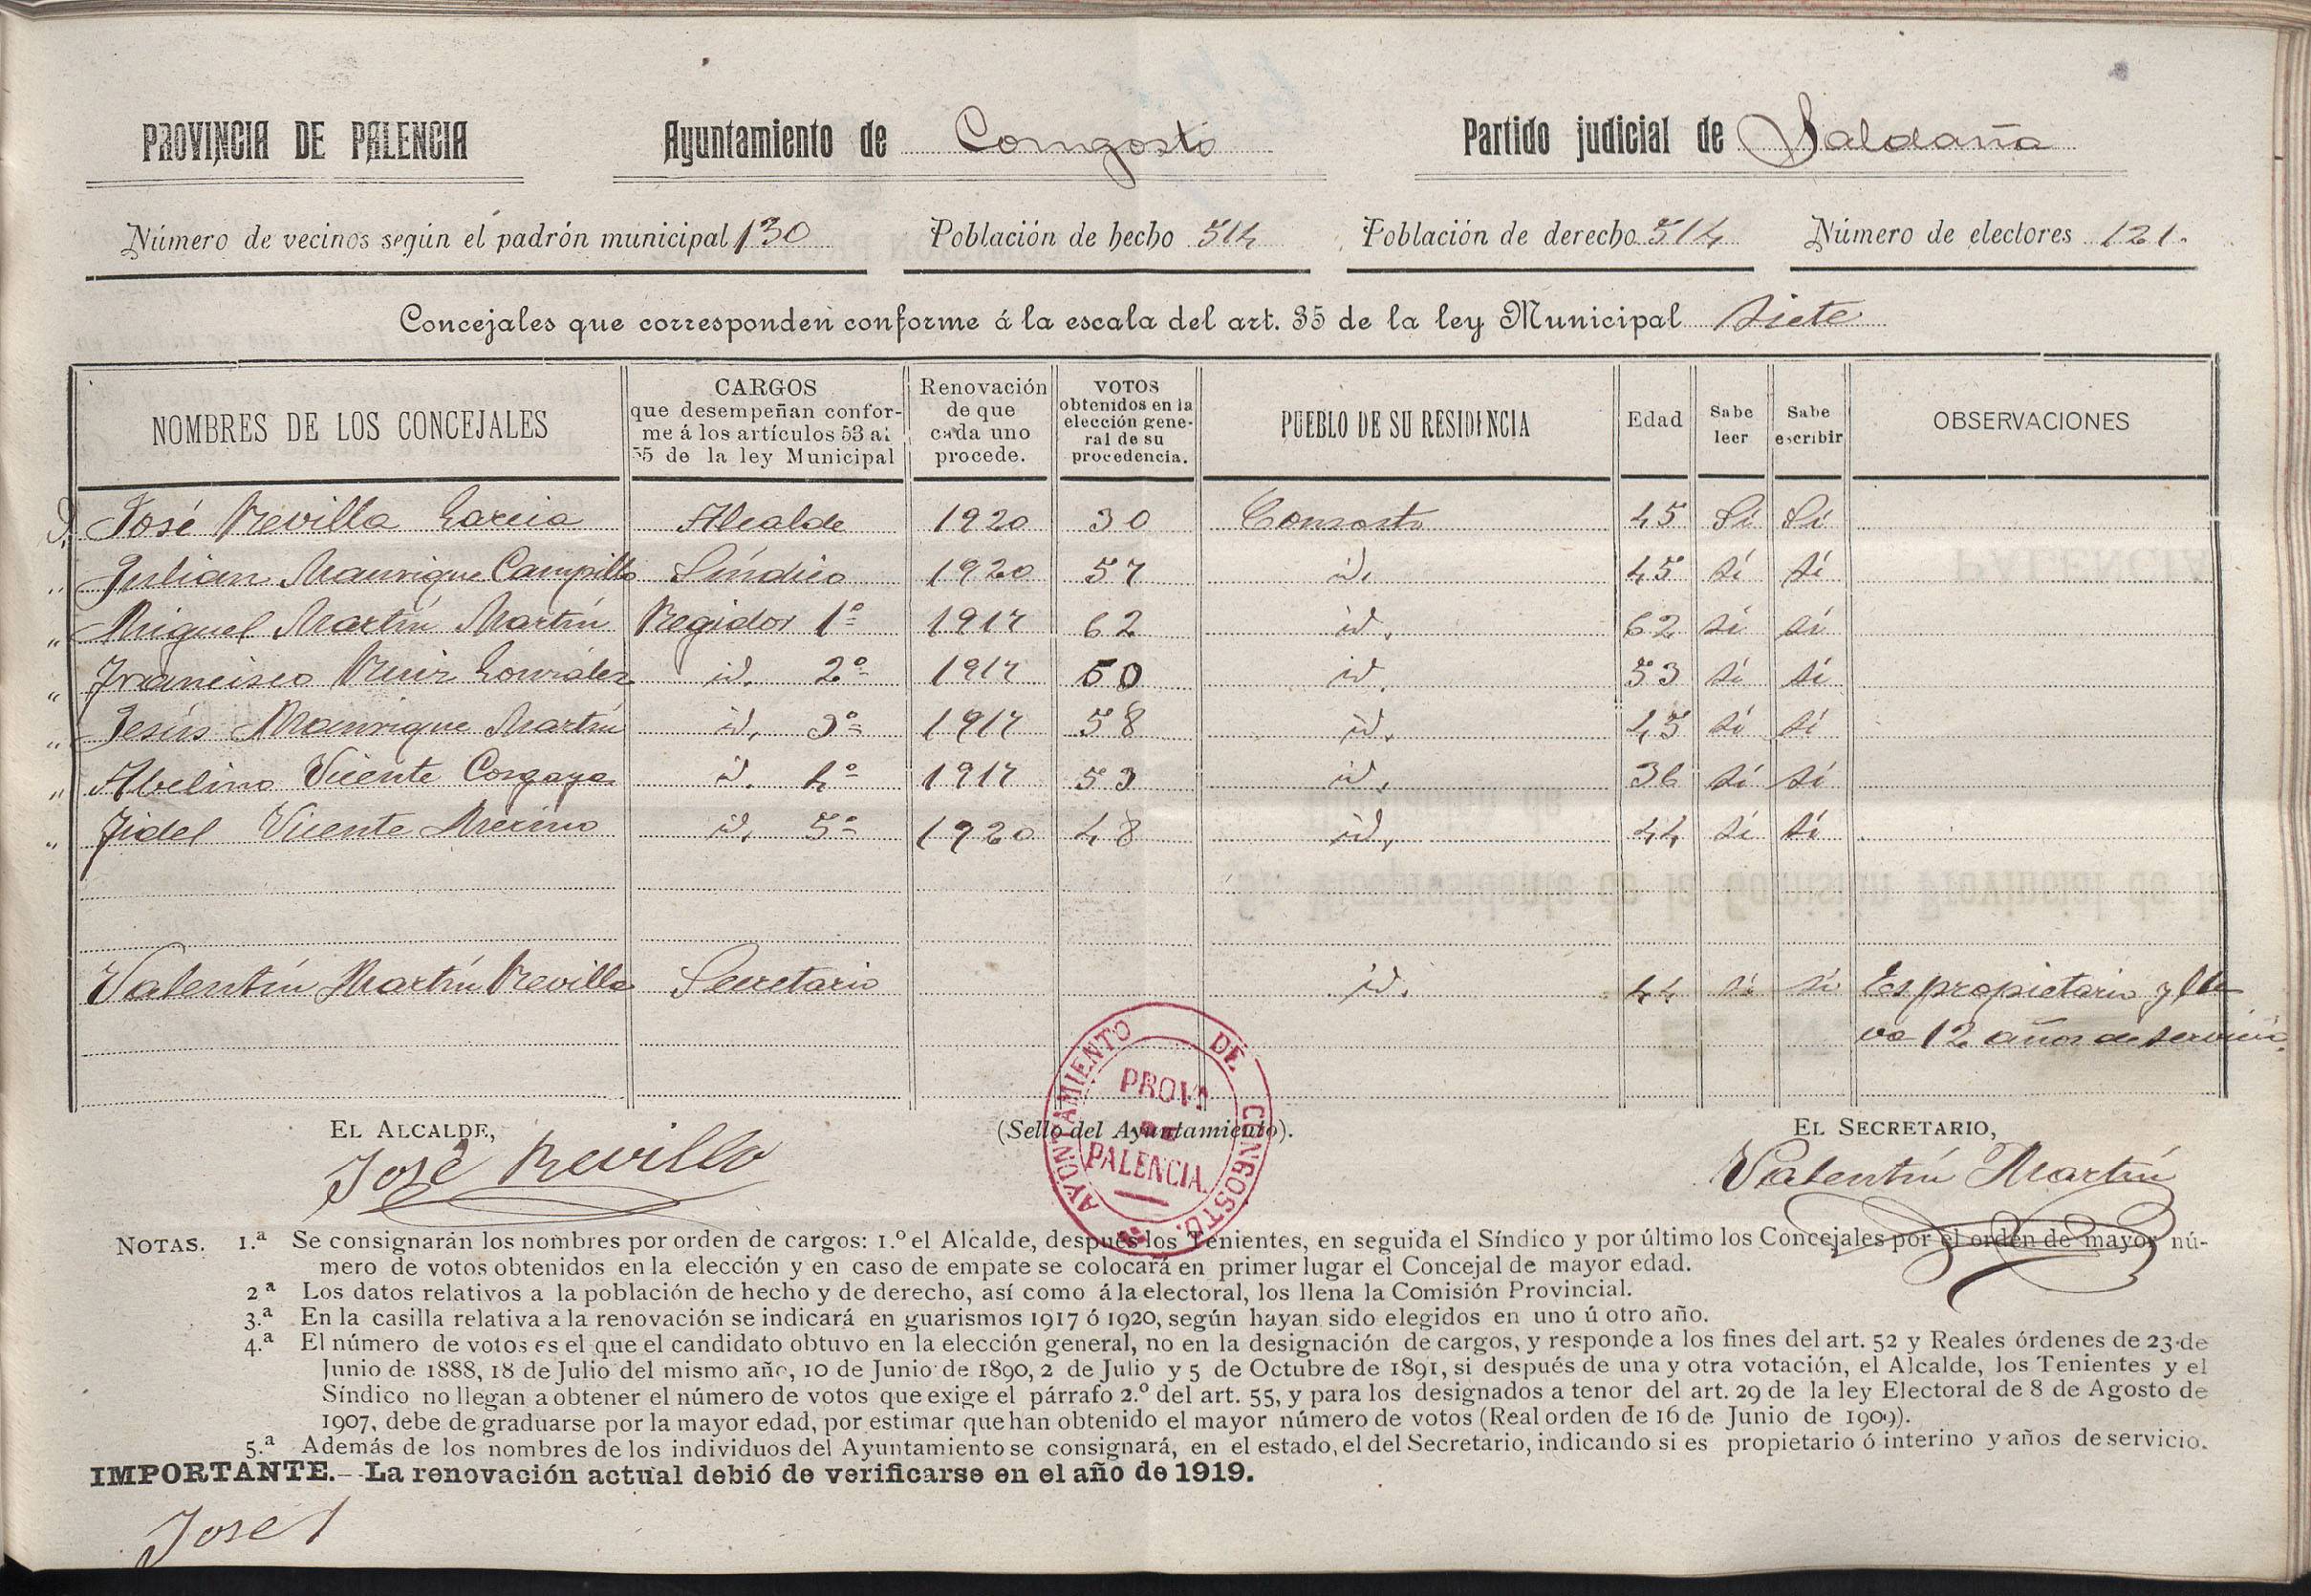 PROVINCIA DE PALENCIA Ayuntamiento de Congosto Partido judicial de Saldaña
Número de vecinos según el padrón municipal 130 Población de hecho 514 Población de derecho 514 Número de electores 121.
Concejales que corresponden conforme á la escala del art. 35 de la ley Municipal Siete
NOMBRES DE LOS CONCEJALES
CARGOS
que desempeñan confor-
me á los artículos 53 al
55 de la ley Municipal
Renovación
de que
cada uno
procede.
VOTOS
obtenidos en la
elección gene-
ral de su
procedencia.
PUEBLO DE SU RESIDENCIA
Edad
Sabe
leer
Sabe
escribir
OBSERVACIONES
D. José Revilla Garcia Alcalde 1920 30 Congosto 45 Sí Sí
„ Julian Manrique Campillo Síndico 1920 57 id. 45 sí sí
„ Miguel Martín Martín Regidor 1º 1917 62 id. 62 sí sí
„ Francisco Ruiz González id. 2º 1917 50 id. 53 sí sí
„ Jesús Manrique Martín id. 3º 1917 58 id. 45 sí sí
„ Abelino Vicente id. 4º 1917 53 id. 36 sí sí
„ Fidel Vicente Merino id. 5º 1920 48 id. 44 sí sí
Valentín Martín Revilla Secretario id. 44 sí sí Es propietario y lle
va 12 años de servicio.
EL ALCALDE, (Sello del Ayuntamiento). EL SECRETARIO,
José Revilla Valentín Martín
AYUNTAMIENTO DE CONGOSTO.
PROVª
DE
PALENCIA.
NOTAS. 1.ª Se consignarán los nombres por orden de cargos: 1.º el Alcalde, después los Tenientes, en seguida el Síndico y por último los Concejales por el orden de mayor nú-
mero de votos obtenidos en la elección y en caso de empate se colocará en primer lugar el Concejal de mayor edad.
2ª Los datos relativos a la población de hecho y de derecho, así como á la electoral, los llena la Comisión Provincial.
3.ª En la casilla relativa a la renovación se indicará en guarismos 1917 ó 1920, según hayan sido elegidos en uno ú otro año.
4.ª El número de votos es el que el candidato obtuvo en la elección general, no en la designación de cargos, y responde a los fines del art. 52 y Reales órdenes de 23 de
Junio de 1888, 18 de Julio del mismo año, 10 de Junio de 1890, 2 de Julio y 5 de Octubre de 1891, si después de una y otra votación, el Alcalde, los Tenientes y el
Síndico no llegan a obtener el número de votos que exige el párrafo 2.º del art. 55, y para los designados a tenor del art. 29 de la ley Electoral de 8 de Agosto de
1907, debe de graduarse por la mayor edad, por estimar que han obtenido el mayor número de votos (Real orden de 16 de Junio de 1909).
5.ª Además de los nombres de los individuos del Ayuntamiento se consignará, en el estado, el del Secretario, indicando si es propietario ó interino y años de servicio.
IMPORTANTE.—La renovación actual debió de verificarse en el año de 1919.
José